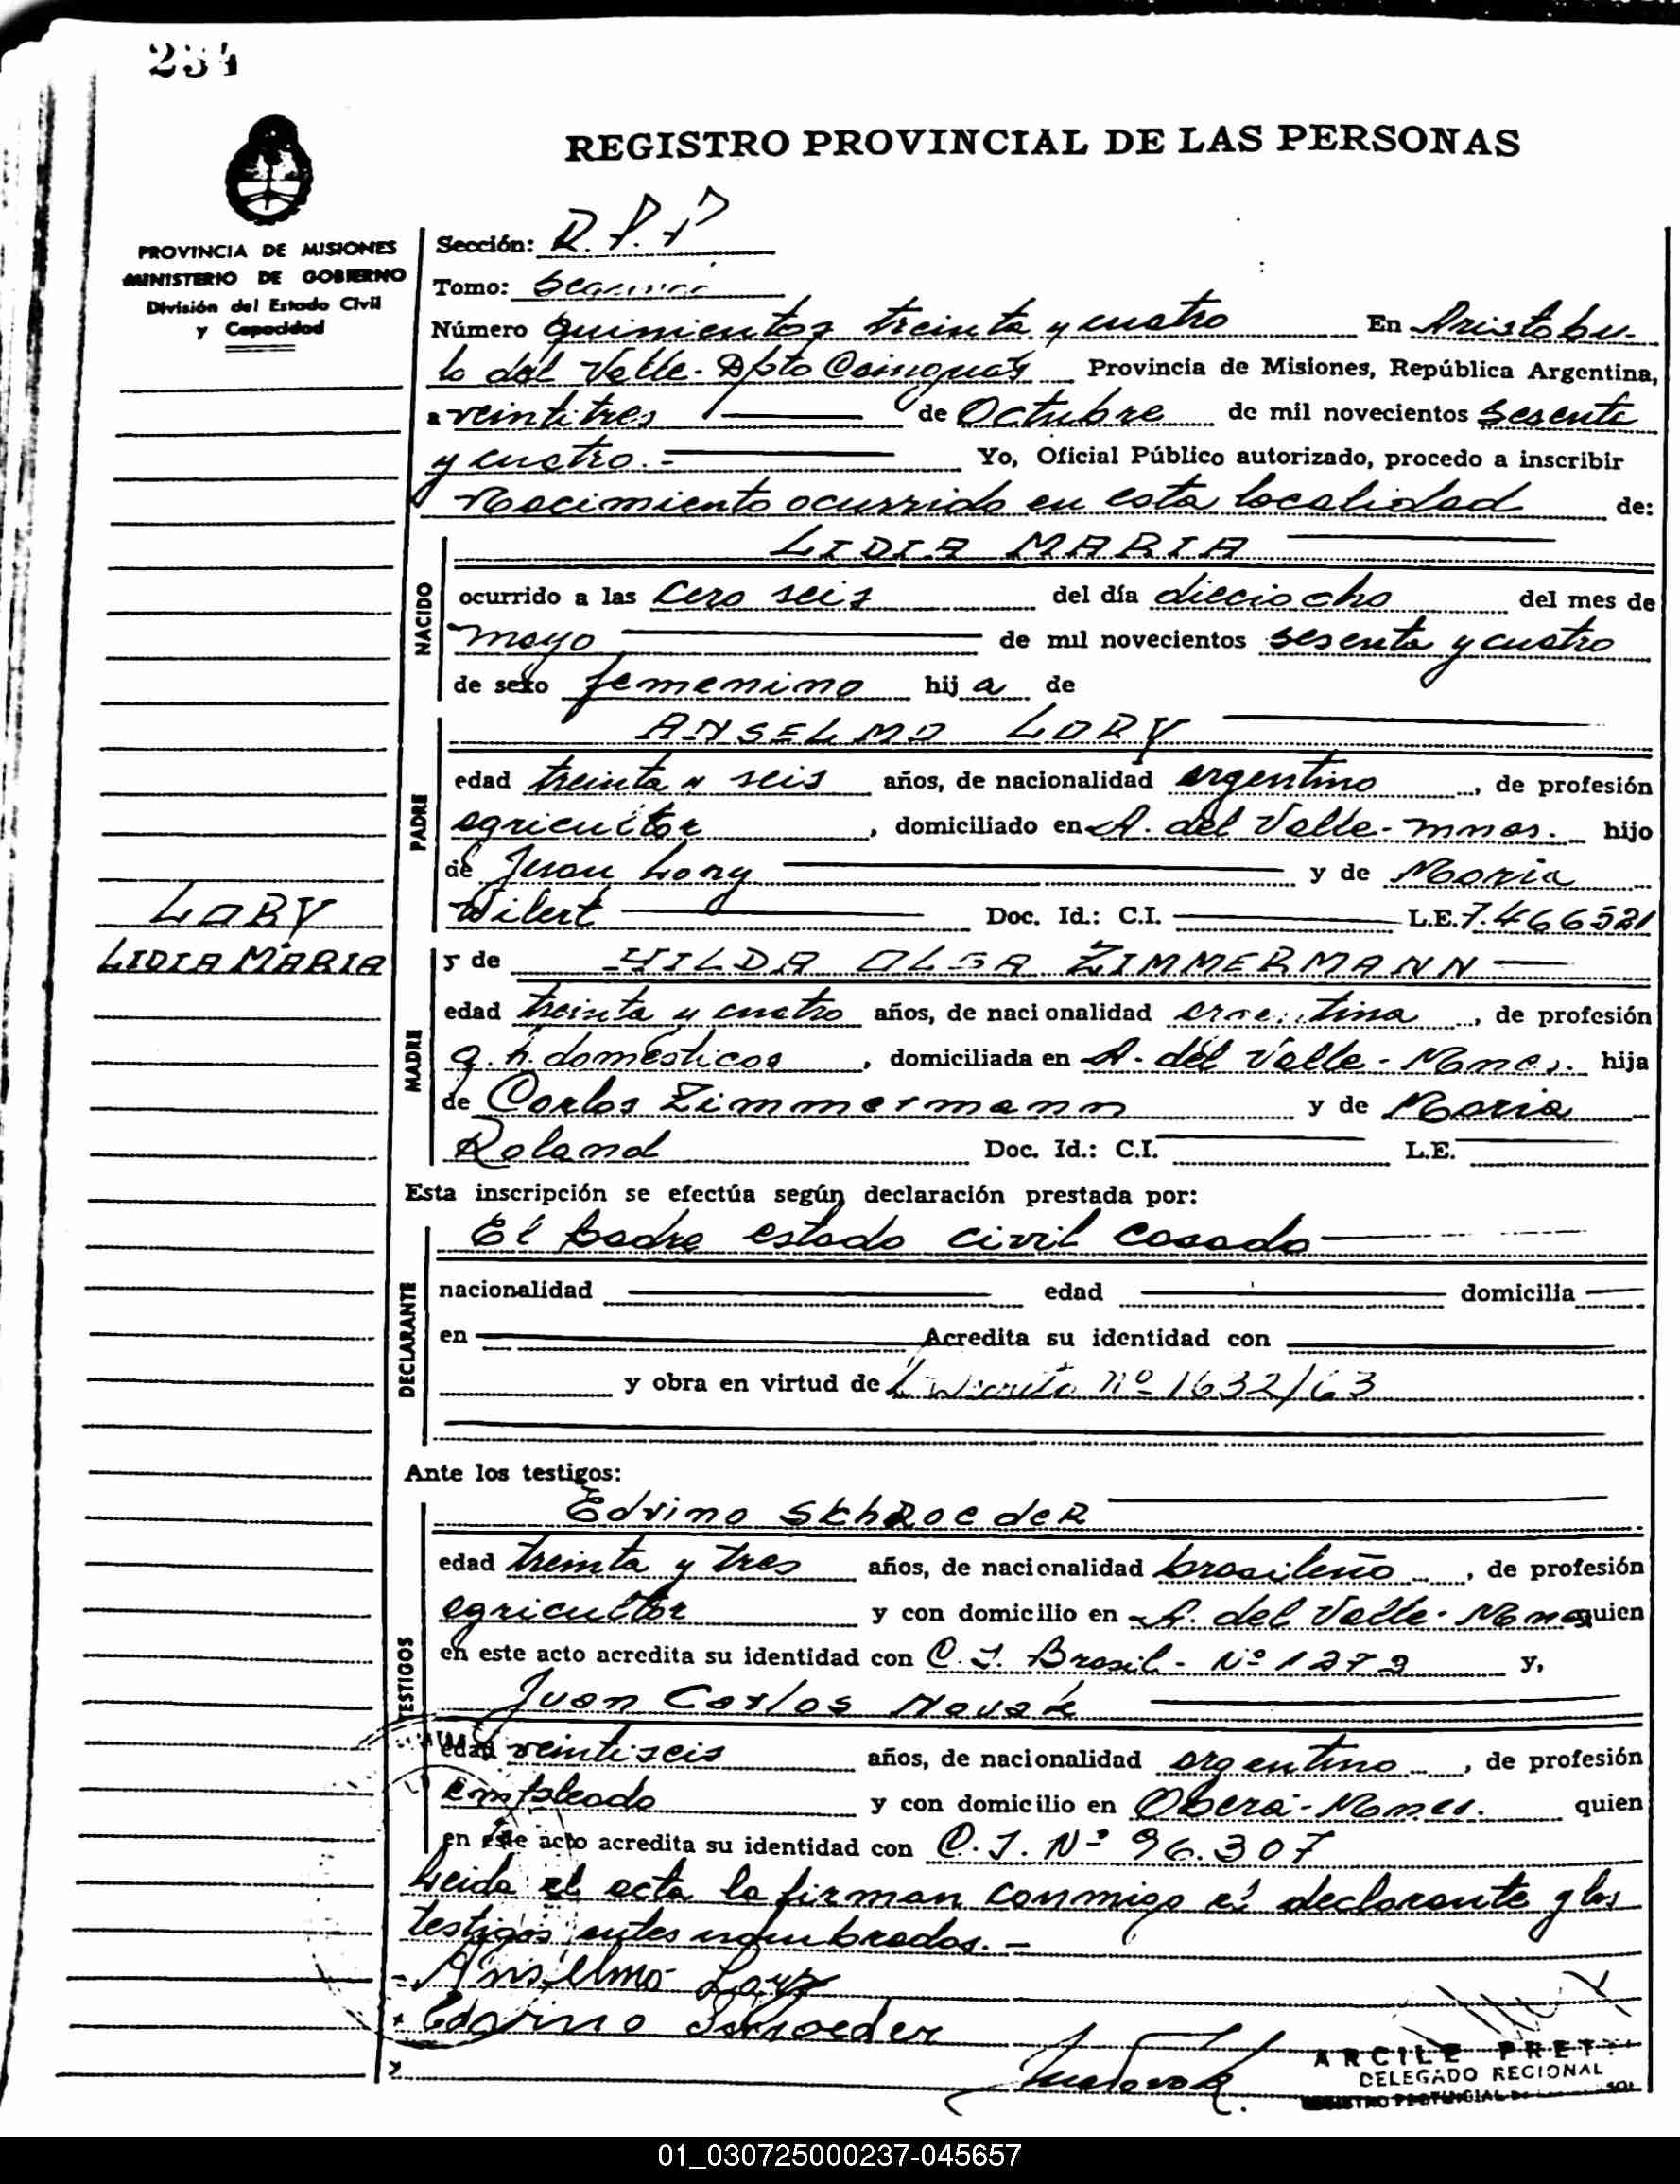 234
REGISTRO PROVINCIAL DE LAS PERSONAS
PROVINCIA DE MISIONES
MINISTERIO DE GOBIERNO
División del Estado Civil
y Capacidad
LORY
LIDIA MARIA
Sección: R.P.P
Tomo: Segundo
Número quinientos treinta y cuatro En Aristobu-
lo del Valle. Dpto Cainguas Provincia de Misiones, República Argentina,
a veintitres de Octubre de mil novecientos sesenta
y cuatro.- Yo, Oficial Público autorizado, procedo a inscribir
Nacimiento ocurrido en esta localidad de:
NACIDO
LIDIA MARIA
ocurrido a las cero seis del día dieciocho del mes de
mayo de mil novecientos sesenta y cuatro
de sexo femenino hija de
PADRE
ANSELMO LORY
edad treinta y seis años, de nacionalidad argentino, de profesión
agricultor, domiciliado en A. del Valle-Mnes. hijo
de Juan Lory y de Maria
Wilert Doc. Id.: C.I. L.E. 7.466521
MADRE
y de HILDA OLGA ZIMMERMANN
edad treinta y cuatro años, de nacionalidad argentina, de profesión
q. h. domésticos, domiciliada en A. del Valle-Mnes. hija
de Carlos Zimmermann y de Maria
Roland Doc. Id.: C.I. L.E.
Esta inscripción se efectúa según declaración prestada por:
DECLARANTE
El padre estado civil casado
nacionalidad edad domicilia
en Acredita su identidad con
y obra en virtud de Decreto nº 1632/63
Ante los testigos:
TESTIGOS
Edvino SkhRoedeR
edad treinta y tres años, de nacionalidad brasileño, de profesión
agricultor y con domicilio en A. del Valle-Mnes quien
en este acto acredita su identidad con C.I. Brasil-Nº 1272 y,
Juan Carlos Novak
edad veintiseis años, de nacionalidad argentino, de profesión
empleado y con domicilio en Oberá-Mnes. quien
en este acto acredita su identidad con C.I. Nº 96.307
Leida el acta la firman conmigo el declarante y los
testigos antes nombrados.-
Anselmo Lory
Edvino Schroeder
ARCILE PRET
DELEGADO REGIONAL
01_030725000237-045657